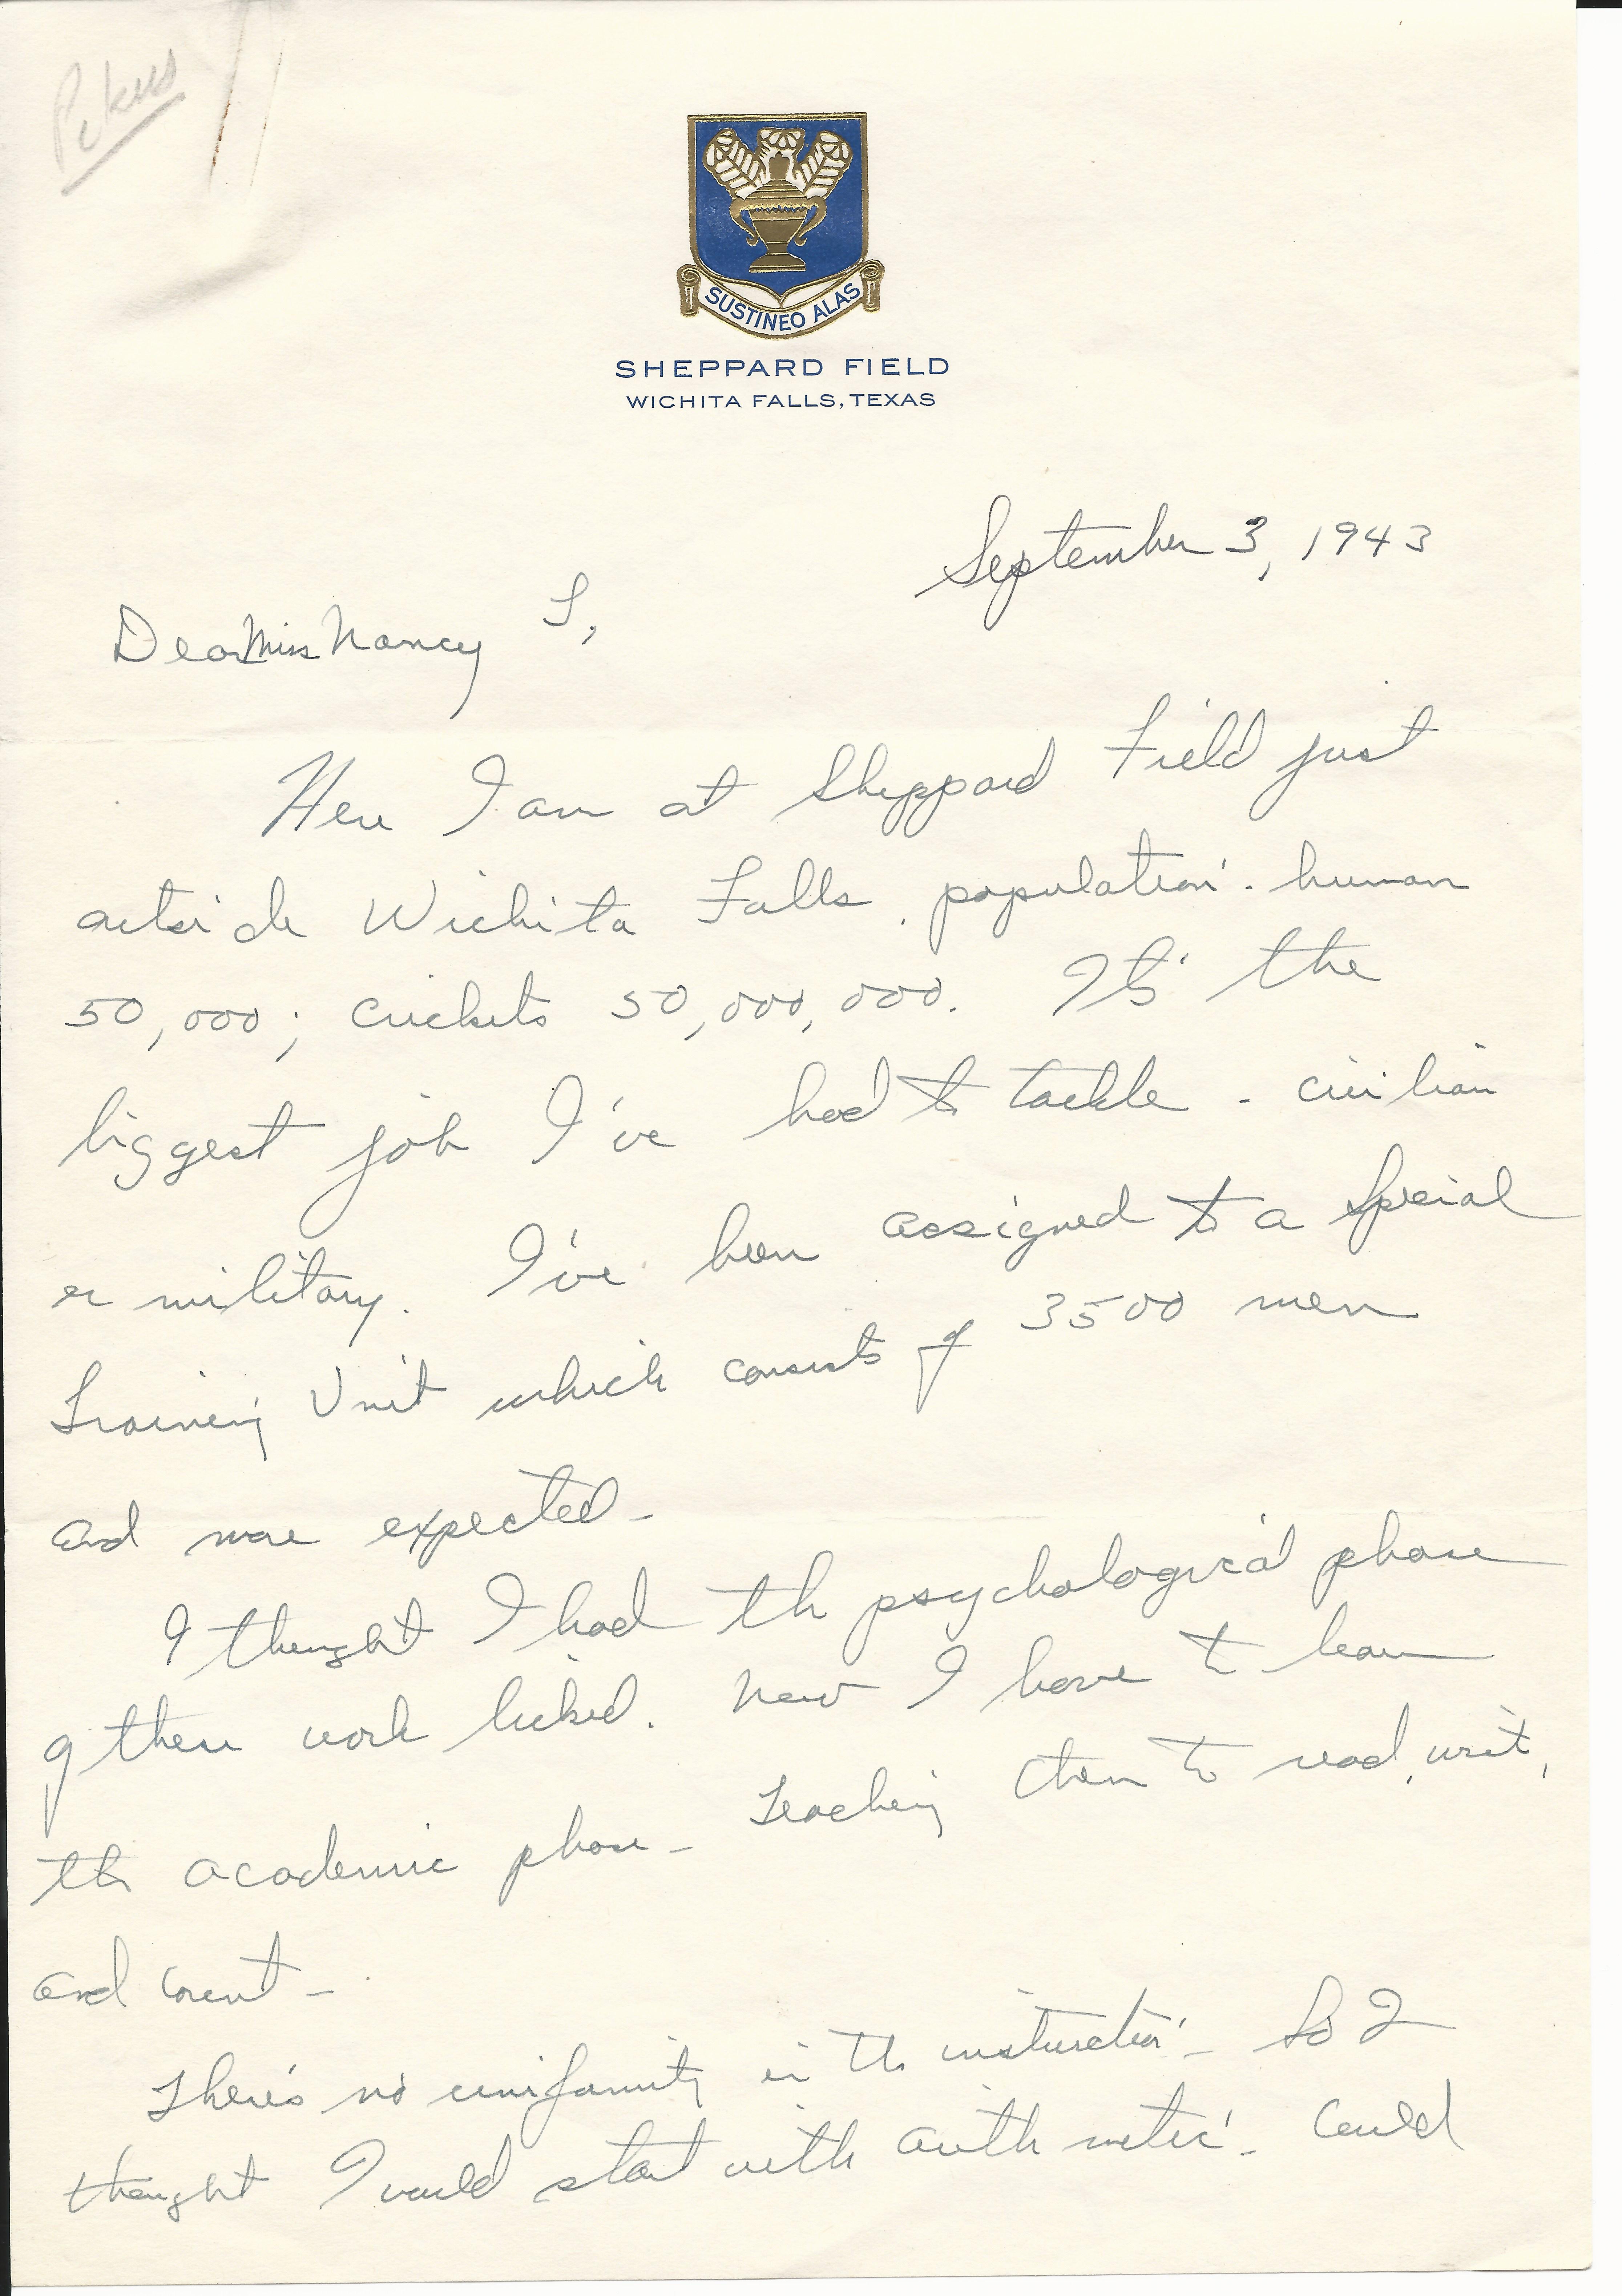 Pikus
SUSTINEO ALAS
SHEPPARD FIELD
WICHITA FALLS, TEXAS
September 3, 1943
Dear Miss Nancy T,
Here I am at Sheppard Field just
outside Wichita Falls, population - human
50,000; crickets 50,000,000. It's the
biggest job I've had to tackle - civilian
or military. I've been assigned to a Special
Training Unit which consists of 3500 men
and more expected -
I thought I had the psychological phase
of there work licked. Now I have to learn
the academic phase - Teaching them to read, write,
and count -
There's no uniformity in the instruction - So I
thought I would start with arithmetic - Could